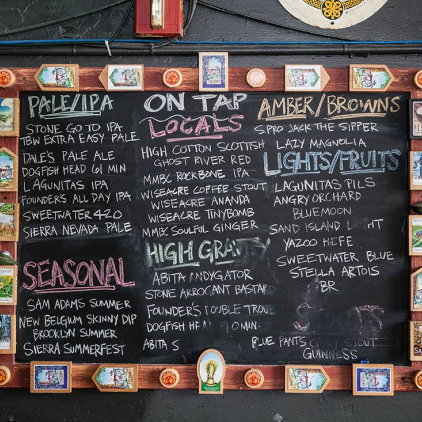 ON TAP
PALE/IPA
STONE GO TO IPA
TBW EXTRA EASY PALE
DALE'S PALE ALE
DOGFISH HEAD 61 MIN
LAGUNITAS IPA
FOUNDER'S ALL DAY IPA
SWEETWATER 420
SIERRA NEVADA PALE
SEASONAL
SAM ADAMS SUMMER
NEW BELGIUM SKINNY DIP
BROOKLYN SUMMER
SIERRA SUMMERFEST
LOCALS
HIGH COTTON SCOTTISH
GHOST RIVER RED
MMBC ROCKBONE IPA
WISEACRE COFFEE STOUT
WISEACRE ANANDA
WISEACRE TINYBOMB
MMBC SOULFUL GINGER
HIGH GRA
ABITA ANDYGATOR
STONE ARROGANT BASTARD
FOUNDER'S DOUBLE TROUB
DOGFISH 90 MIN
ABITA S
AMBER/BROWNS
SPRO JACK THE SIPPER
LAZY MAGNOLIA
LIGHTS/FRUITS
LAGUNITAS PILS
ANGRY ORCHARD
BLUEMOON
SAND ISLAND
YAZOO HEFE
SWEETWATER BLUE
STELLA ARTOIS
BR
PANTS STOUT
GUINNESS